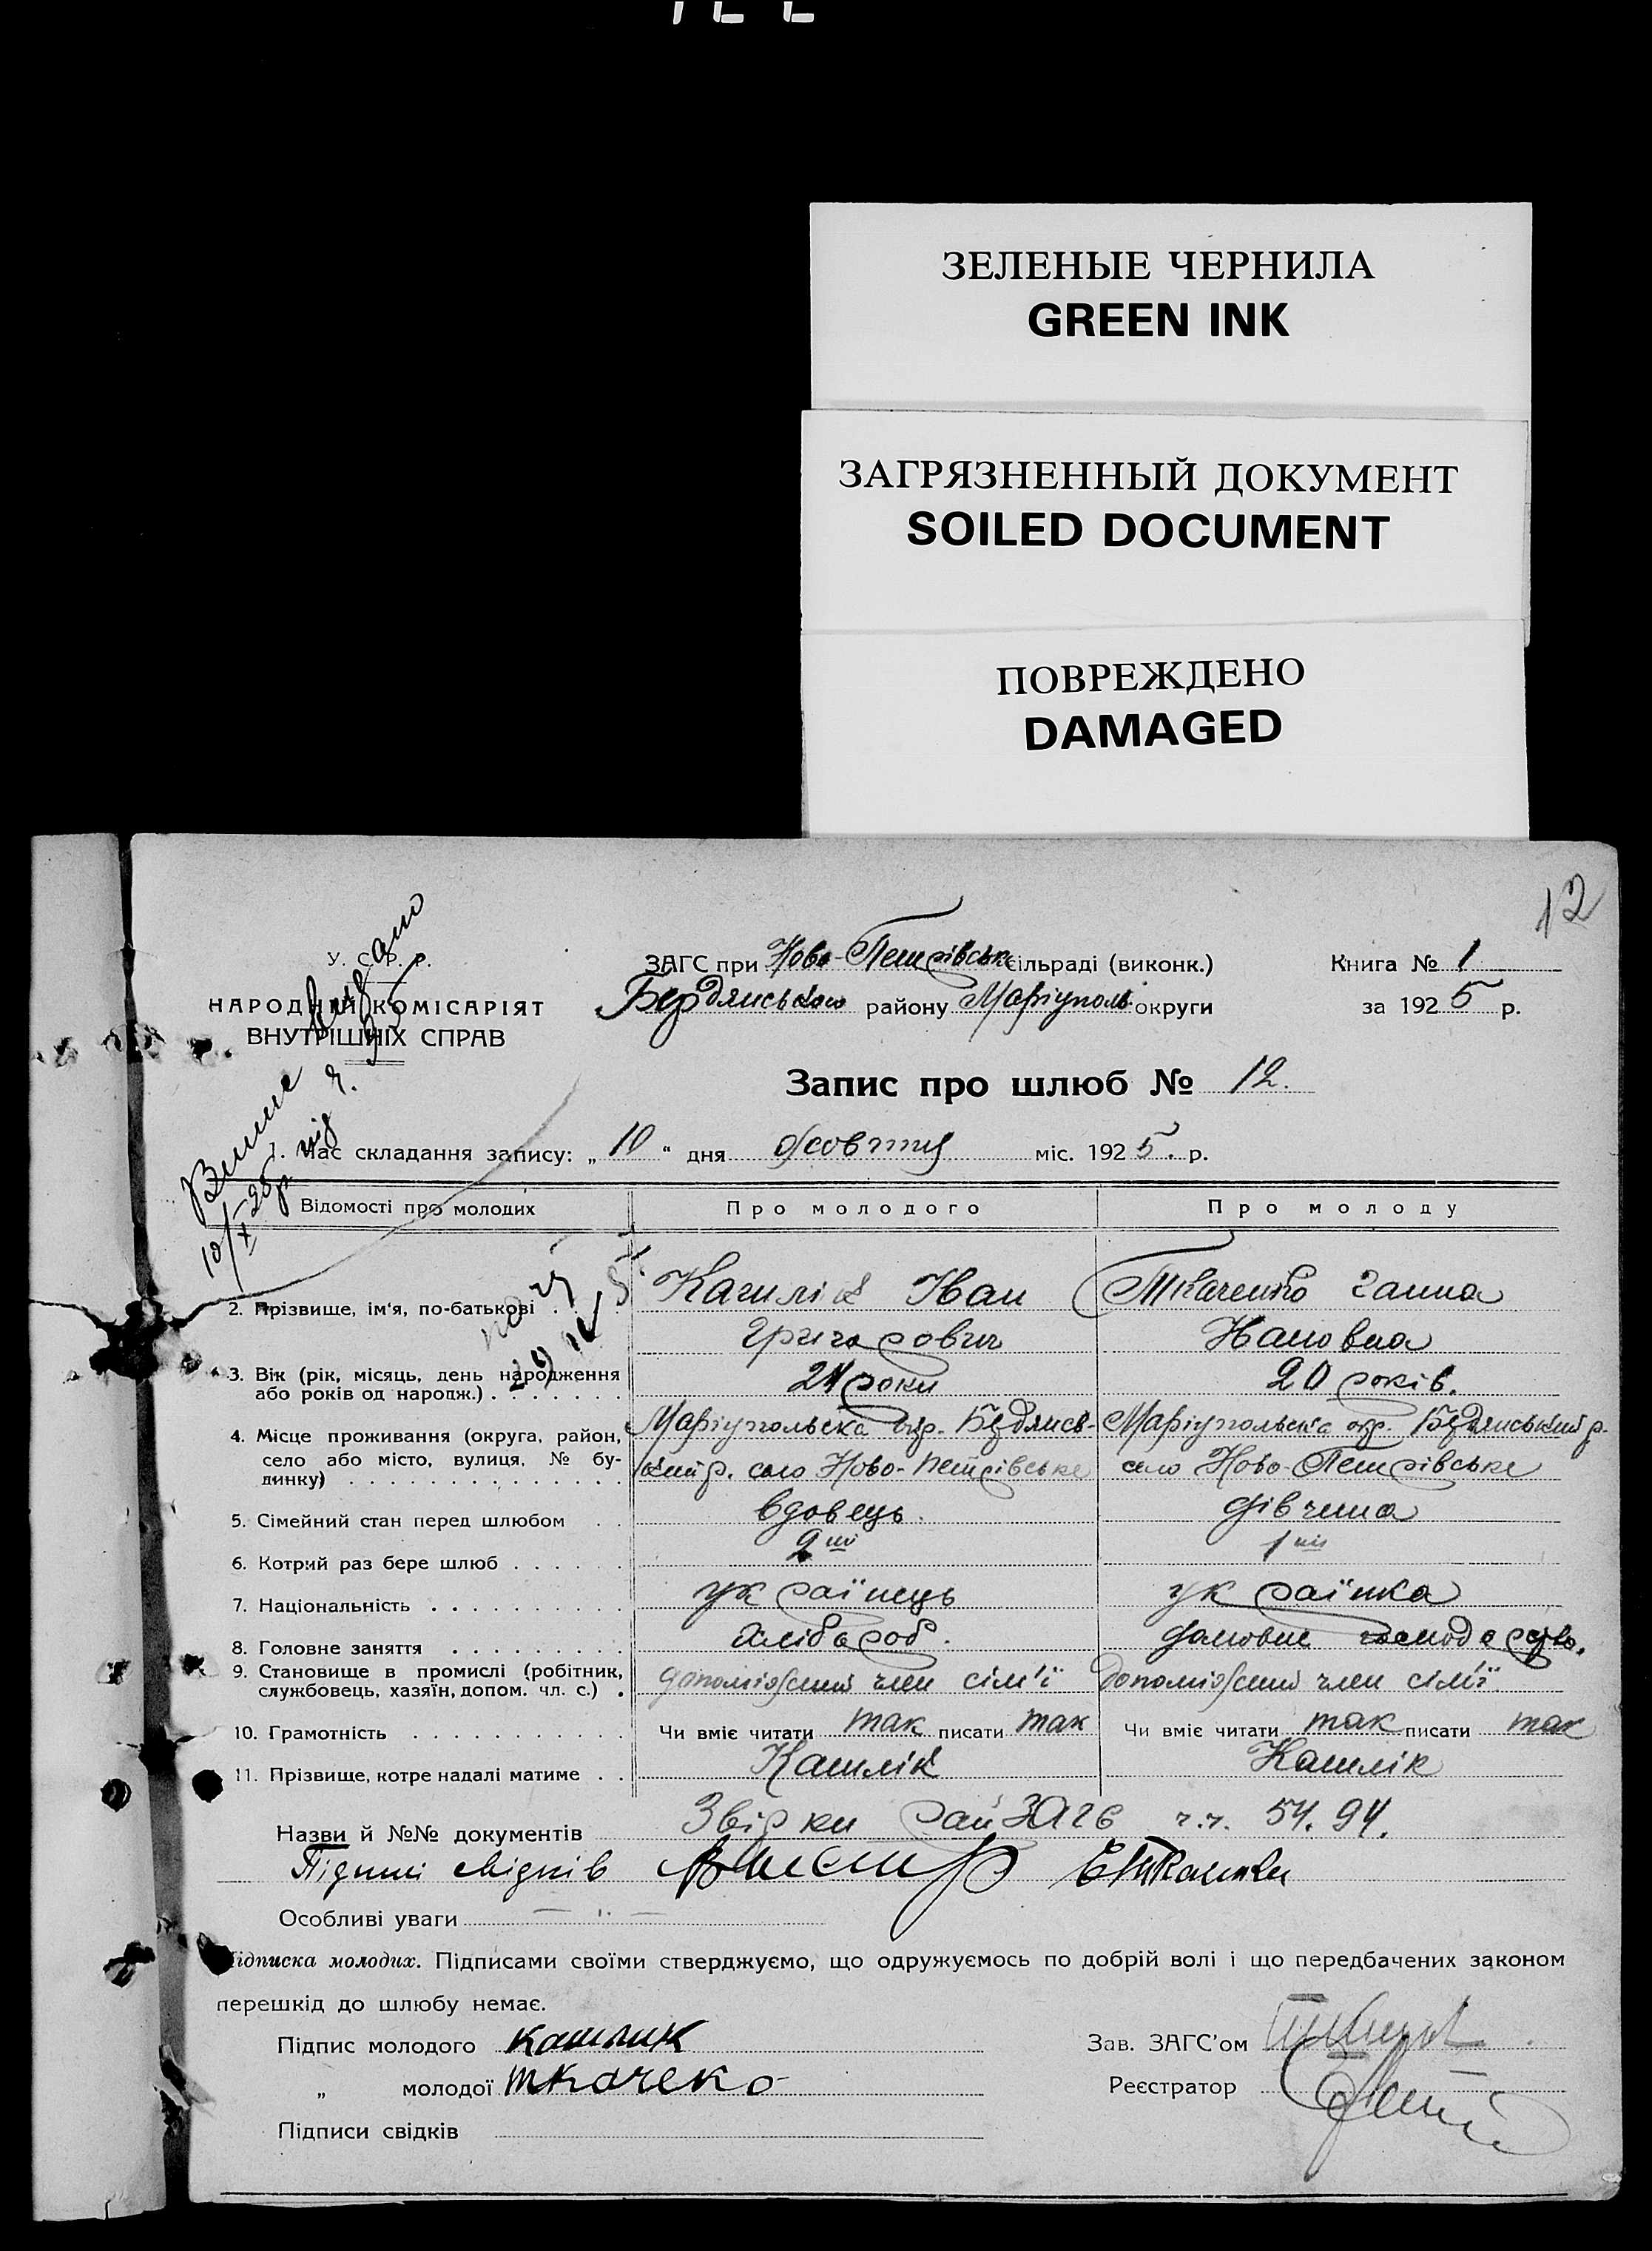 ЗЕЛЕНЫЕ ЧЕРНИЛА
GREEN INK
ЗАГРЯЗНЕННЫЙ ДОКУМЕНТ
SOILED DOCUMENT
ПОВРЕЖДЕНО
DAMAGED
12
У. С. Р. Р.
НАРОДНІЙ КОМІСАРІЯТ
ВНУТРІШНІХ СПРАВ
ЗАГС при Ново-Петрівськ сільраді (виконк.)
Бердянського району Маріуполь округи
Книга № 1
за 1925 р.
Запис про шлюб № 12.
1. Час складання запису: „10“ дня Жовтня міс. 1925. р.
Відомості про молодих Про молодого Про молоду
2. Прізвище, ім'я, по-батькові Кашлік Іван Ткаченко Ганна
Григорович Іановна
3. Вік (рік, місяць, день народження або років од народж.) 24 роки 20 років.
4. Місце проживання (округа, район, Маріупольська окр. Бердянсь- Маріупольська окр. Бердянський р.
село або місто, вулиця, № бу- кий р. село Ново-Петрівське село Ново-Петрівське
динку)
5. Сімейний стан перед шлюбом вдовець. дівчина
6. Котрий раз бере шлюб 2 ий 1 ий
7. Національність українець українка
8. Головне заняття хлібороб. домовне господарство.
9. Становище в промислі (робітник, допоміжний член сім'ї допоміжний член сім'ї
службовець, хазяїн, допом. чл. с.)
10. Грамотність Чи вміє читати так писати так Чи вміє читати так писати так
11. Прізвище, котре надалі матиме Кашлік Кашлік
Назви й №№ документів Звірки райЗАГС ч.ч. 54. 94.
Підписи свідків
Особливі уваги — " —
Підписка молодих. Підписами своїми стверджуємо, що одружуємось по добрій волі і що передбачених законом
перешкід до шлюбу немає.
Підпис молодого кашлик
„ молодої ткачеко
Підписи свідків
Зав. ЗАГС'ом
Реєстратор